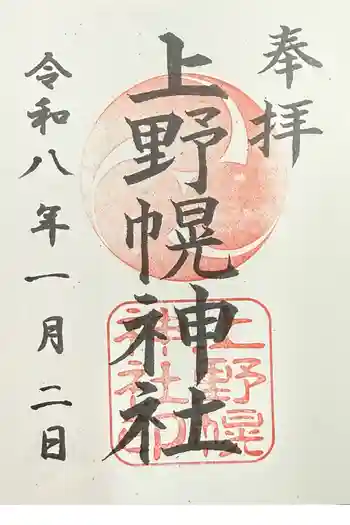 奉拝
上野幌神社
上野幌
神社印
令和八年一月二日